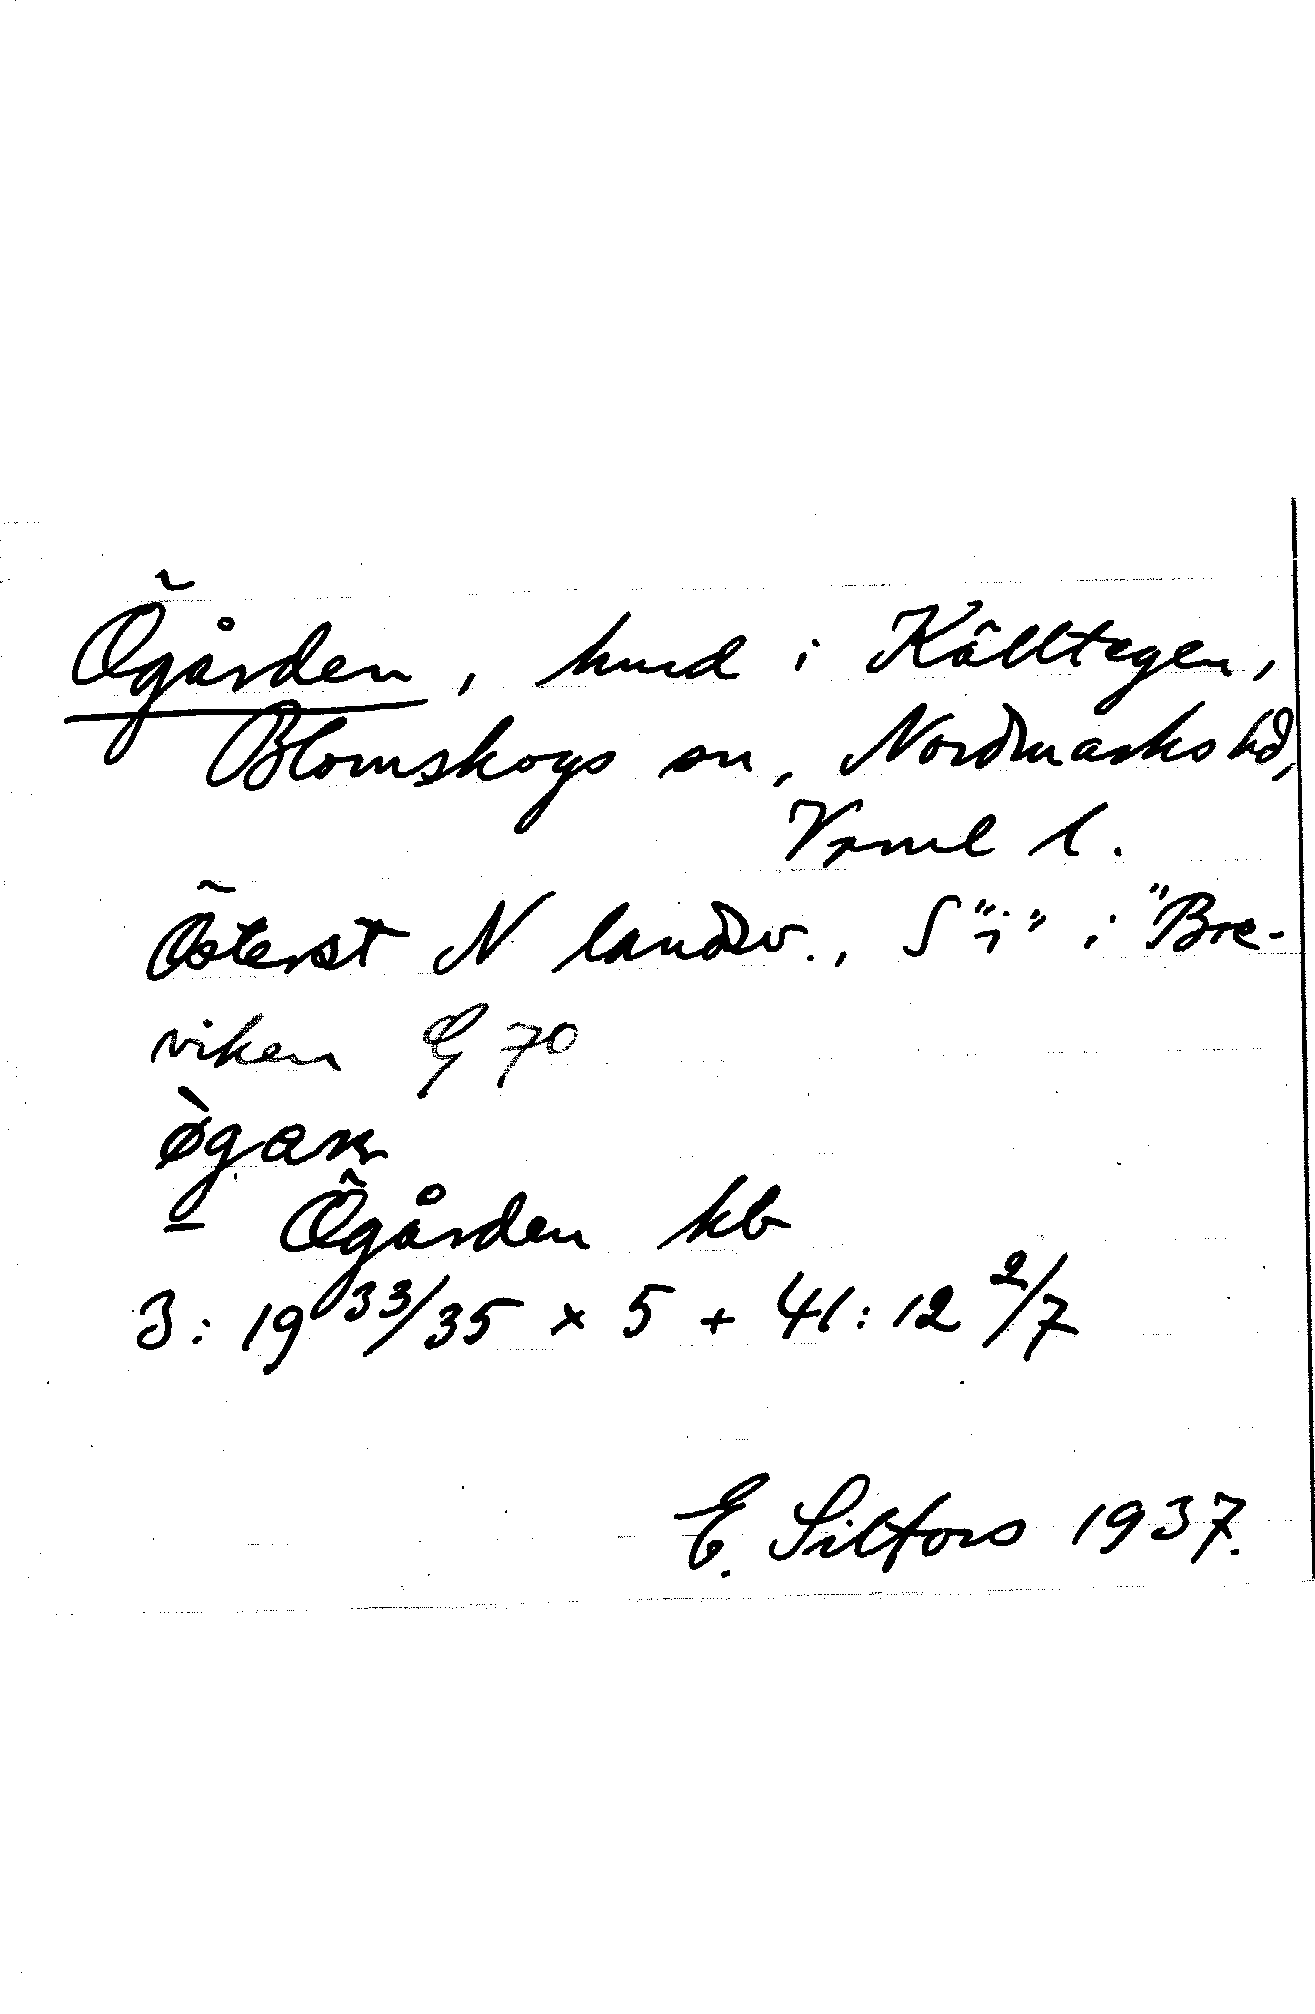 Ögården, hmd i Källtegen,
Blomskogs sn, Nordmarks hd,
Vrml l.
Österst N landsv., S "i" i "Bre-
viken G 70
øgaɳ
– Ögården kb
3:19 33/35 x 5 + 41:12 2/7
E. Silfors 1937.